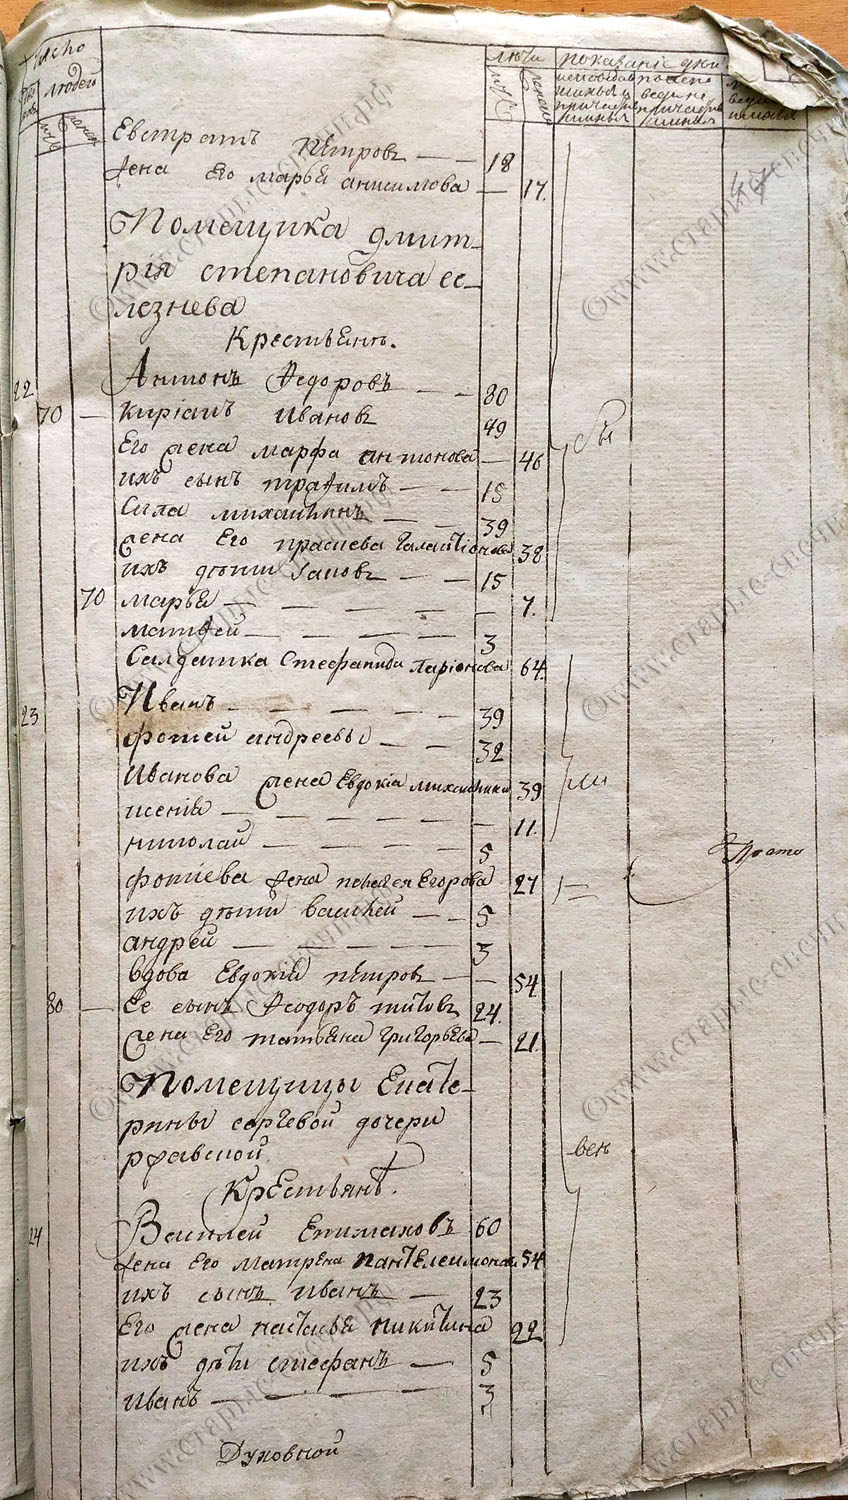 число
людей
лѣта
показанiе дѣй
Евстратъ Петровъ — — 18
жена Его марья анисимова — 17.
Помещика дмит-
рiя степановича се-
лезнева
Крестьянъ.
22 Антонъ Ѳедоровъ — — 80
70 — Киріанъ Ивановъ 49
Его жена марфа антонова — 46
ихъ сынъ трафимъ — — 15
Сила михаилинъ — — 39
жена Его праскева Галактіонова 38
ихъ дѣти — — 15
70 марья — — — — — 7.
матѳей — — — — 3
бы
Салдатка Стефанида ларіонова 64.
23 Иванъ — — — — — 39
фотей андреевы — — 32
Иванова жена Евдокіа 39
ксенія — — — — — — 11.
ли
николай — — — — — 5
просто
фотіева жена Егорова 27
ихъ дѣти василей — — 5
андрей — — — — — 3
вдова Евдокія петрова — — 54
80 — Ее сынъ Ѳеодоръ титовъ 24.
жена Его татьяна григорьева — 21.
Помещицы Екате-
рины сергевой дочери
ржавской
вен
Крестьянъ.
24 Василей Епимаховъ 60
жена Его матрена пантелеимонова 54
ихъ сынъ иванъ — 23
Его жена настасья никитина 22
ихъ дѣти стефанъ — 5
иванъ — — — — — 3
Духовной
©www.старые-свечи.рф